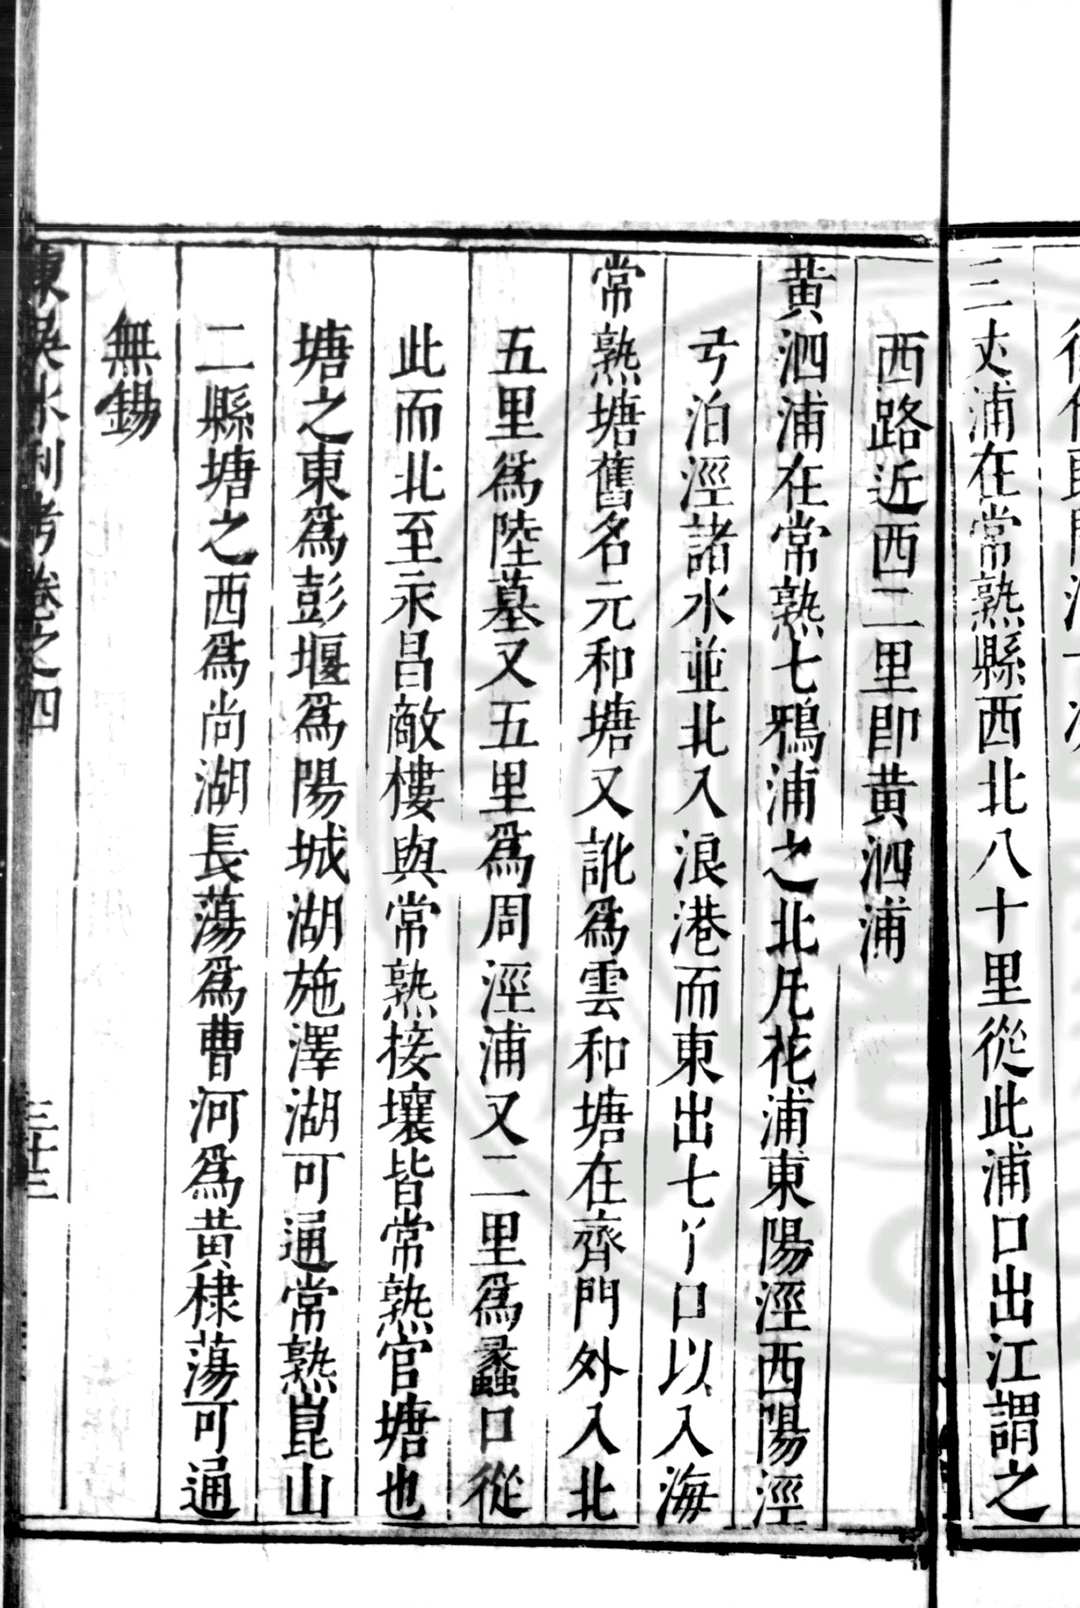 三丈浦在常熟縣西北八十里從此浦口出江謂之
西路近西二里即黄泗浦
黄泗浦在常熟七鴉浦之北凡花浦東陽涇西陽涇
兮泊涇諸水並北入浪港而東出七丫口以入海
常熟塘舊名元和塘又訛爲雲和塘在齊門外入北
五里爲陸墓又五里爲周涇浦又二里爲蠡口從
此而北至永昌敵樓與常熟接壤皆常熟官塘也
塘之東爲彭堰爲陽城湖施澤湖可通常熟崑山
二縣塘之西爲尚湖長蕩爲曹河爲黄棣蕩可通
無錫
東吳水利考卷之四
三十三